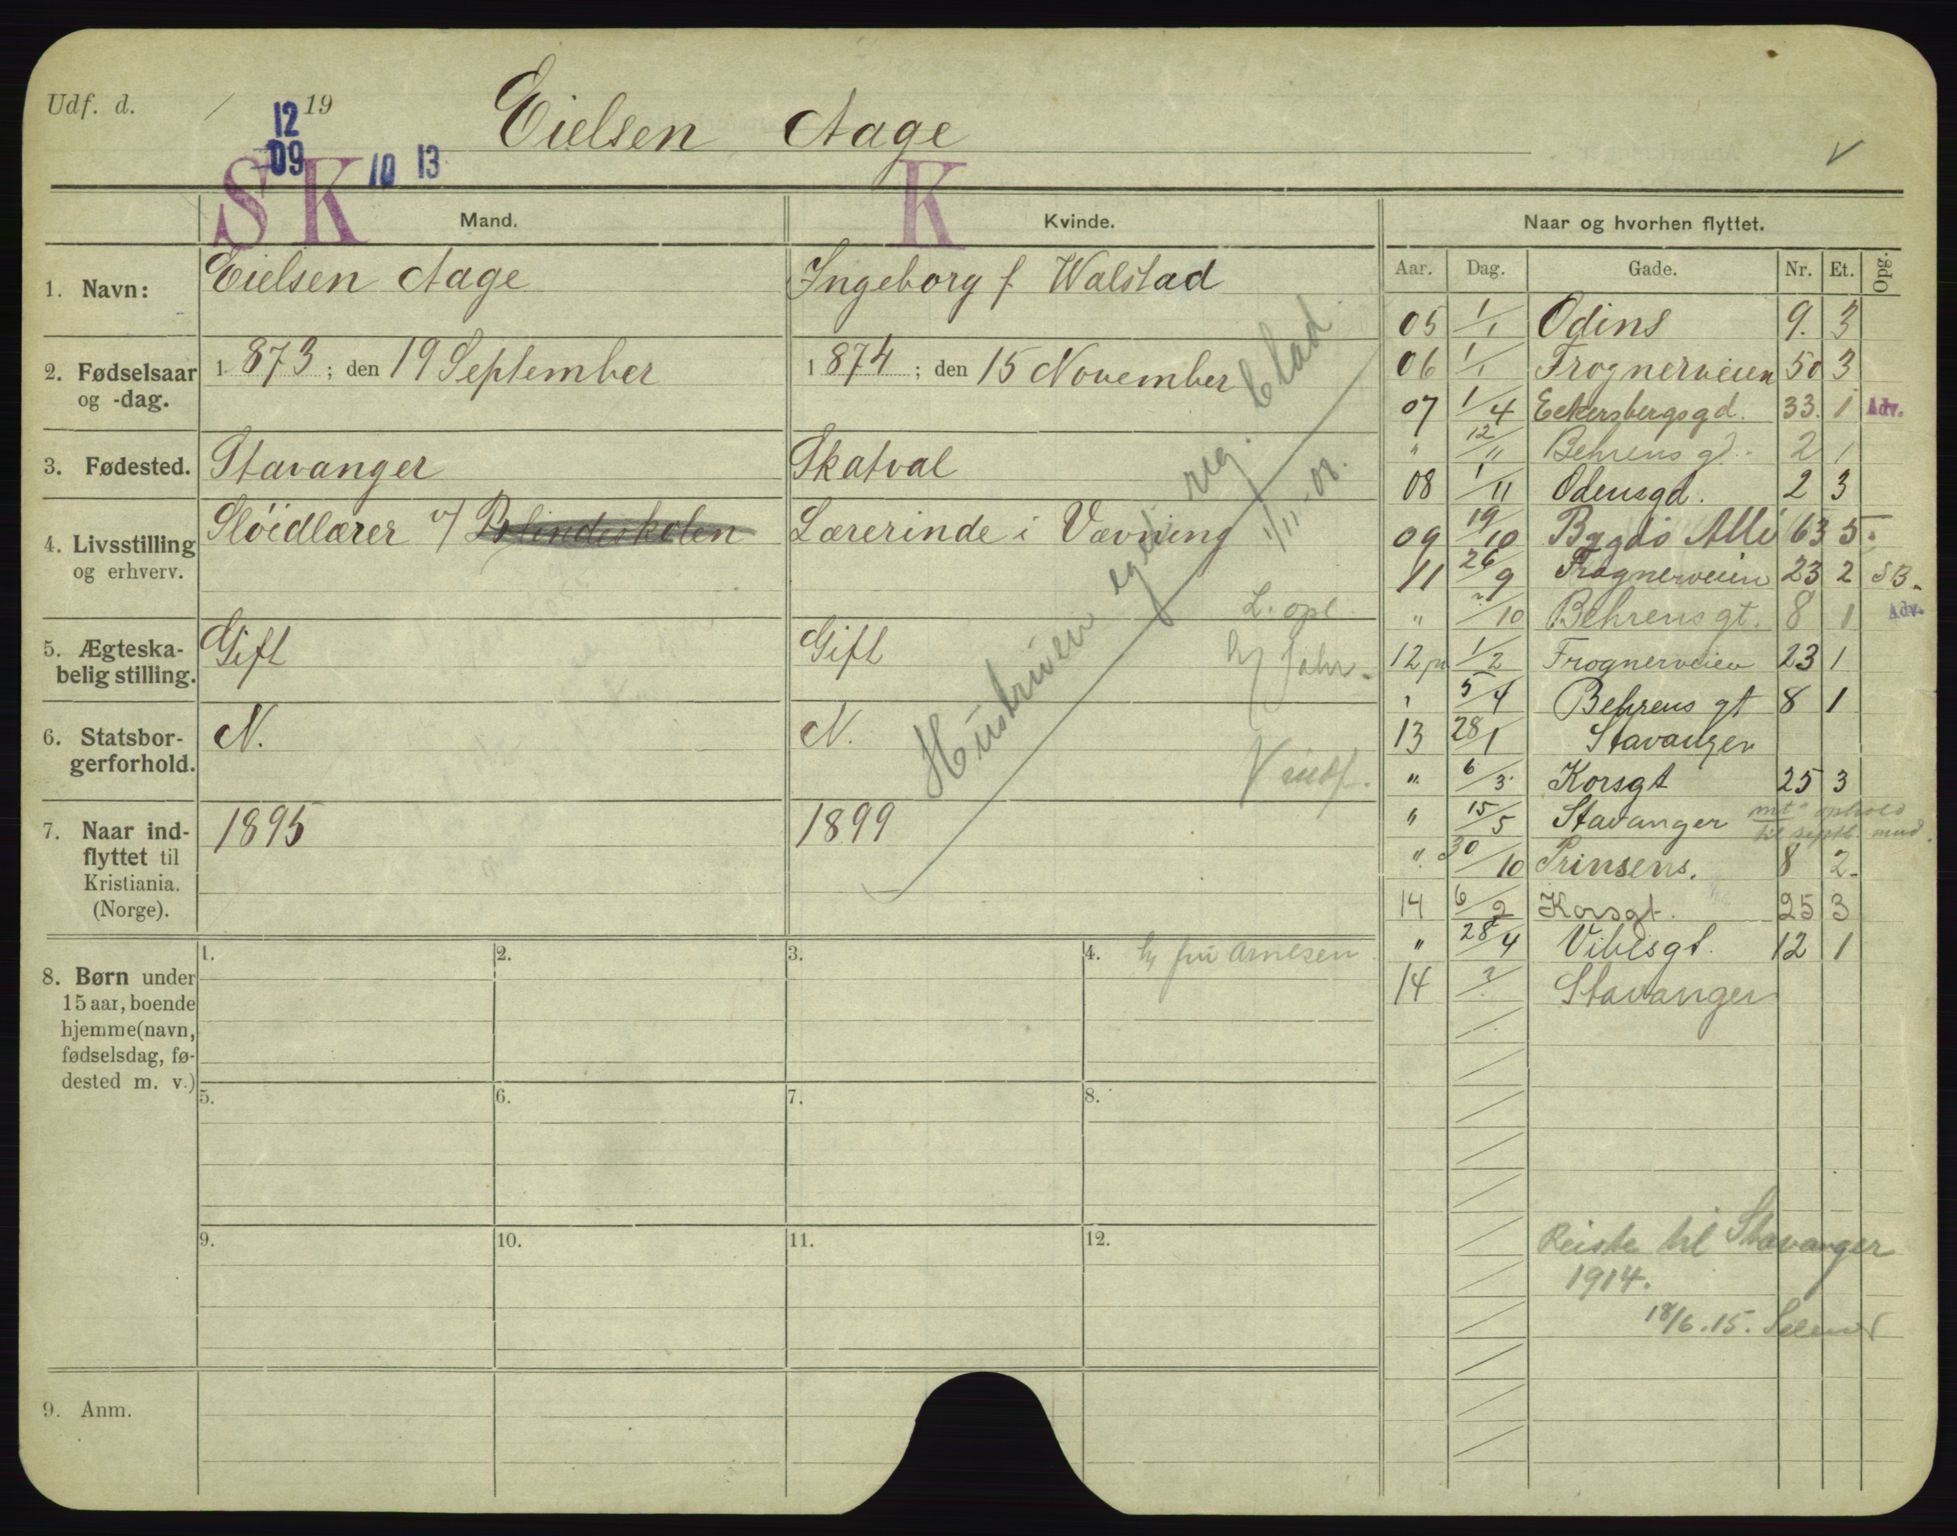 Udf. d. / 19
12 09 10 13
Eielsen Aage
V
S K K
Mand. Kvinde. Naar og hvorhen flyttet.
Aar. Dag. Gade. Nr. Et. Opg.
1. Navn: Eielsen Aage Ingeborg f Walstad
2. Fødselsaar og -dag. 1873; den 19 September 1874; den 15 November
3. Fødested. Stavanger Skatval
4. Livsstilling og erhverv. Slöidlærer v/ Blindeskolen Lærerinde i Vævning
5. Ægteska-
belig stilling. Gift Gift
6. Statsbor-
gerforhold. N. N.
7. Naar ind-
flyttet til
Kristiania.
(Norge). 1895 1899
Hustruen eget reg. blad
1/11-08.
L. opl
V indf.
8. Børn under
15 aar, boende
hjemme (navn,
fødselsdag, fø-
dested m. v.)
1. 2. 3. 4. fru Arnesen
5. 6. 7. 8.
9. 10. 11. 12.
9. Anm.
05 1/1 Odins 9. 3
06 1/1 Frognerveien 50 3
07 1/4 Eckersbergsgd. 33. 1 Adv.
" 12/11 Behrens gd. 2 1
08 1/11 Odensgd. 2 3
09 19/10 Bygdö Allé 63 5.
11 26/9 Frognerveien 23 2 SB.
" ?/10 Behrens gt. 8 1 Adv.
12 1/2 Frognerveien 23 1
" 5/4 Behrens gt 8 1
13 28/1 Stavanger
" 6/3 Korsgt 25 3
" 15/5 Stavanger mt. ophold
til septb mnd.
" 30/10 Prinsens. 8 2.
14 6/2 Korsgt. 25 3
" 28/4 Vibesgt. 12 1
14 ?/ Stavanger
Reiste til Stavanger
1914.
18/6.15.